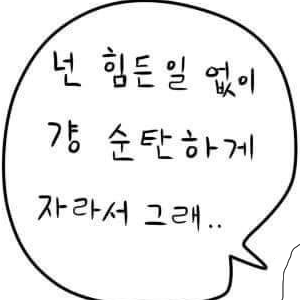 넌 힘든일 없이
걍 순탄하게
자라서 그래..